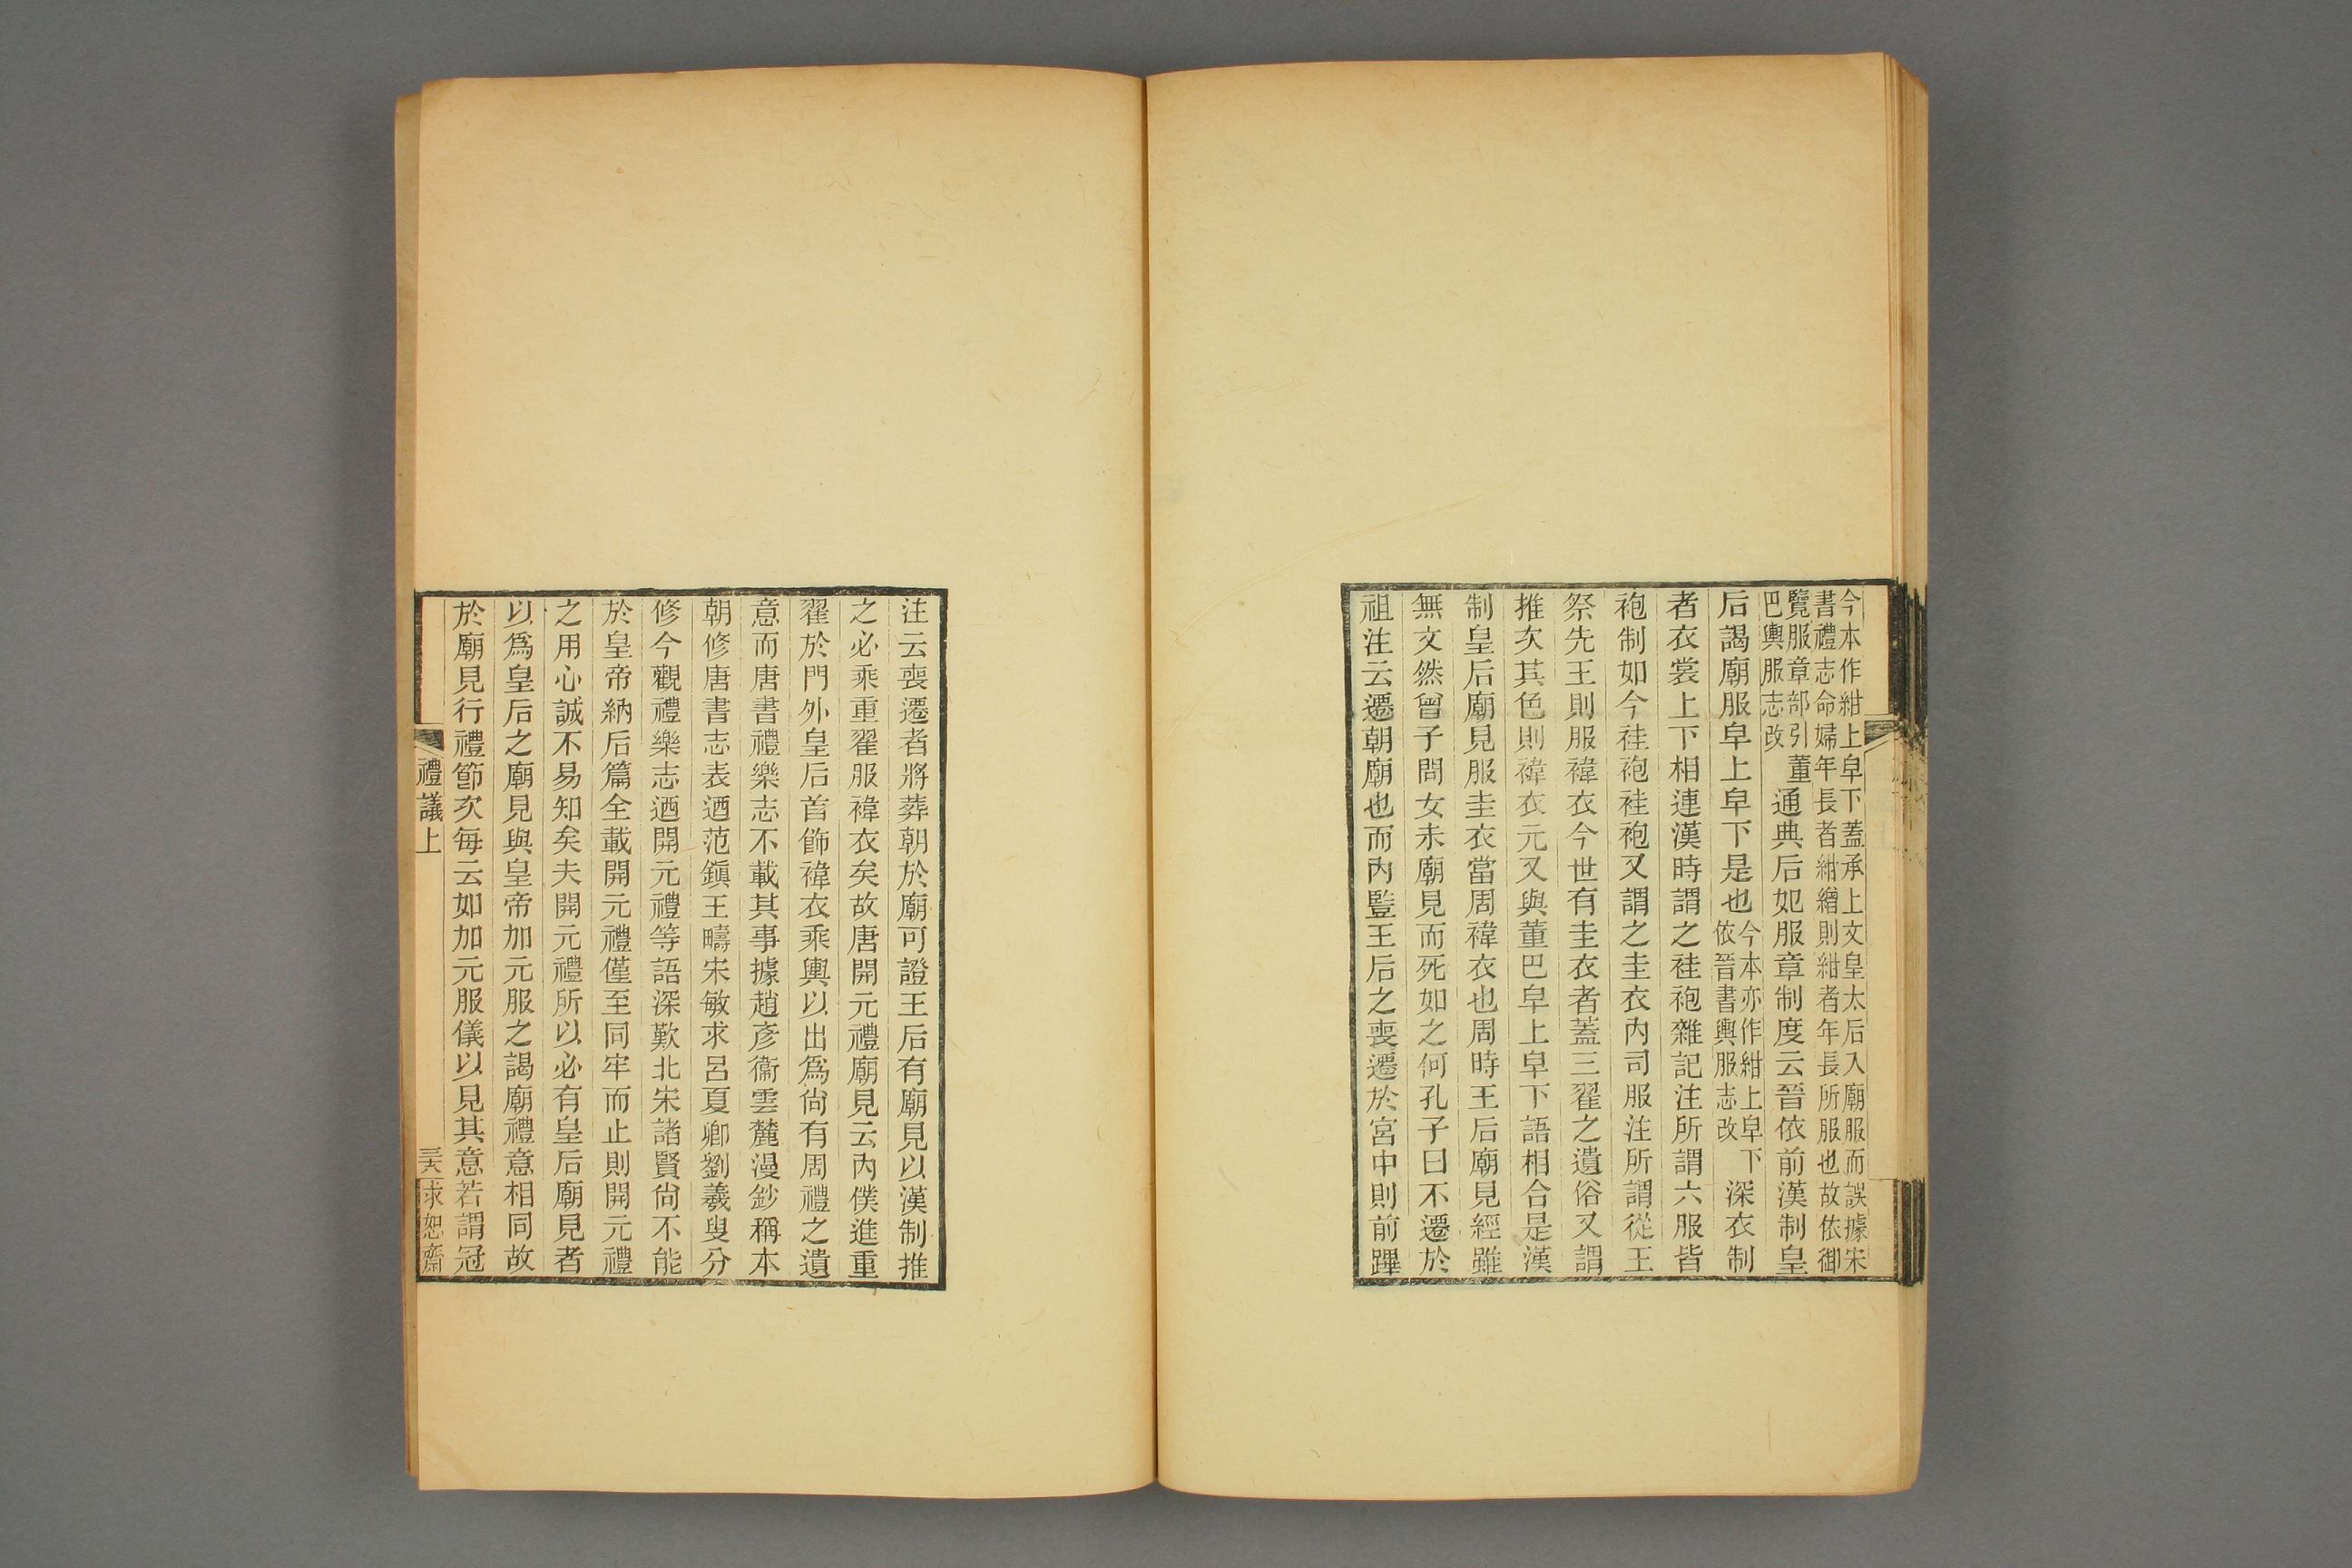 今本作紺上皁下蓋承上文皇太后入廟服而誤據宋
書禮志命婦年長者紺繒則紺者年長所服也故依御
覽服章部引董
巴輿服志改
通典后妃服章制度云晉依前漢制皇
后謁廟服皁上皁下是也
今本亦作紺上皁下
依晉書輿服志改
深衣制
者衣裳上下相連漢時謂之袿袍雜記注所謂六服皆
袍制如今袿袍袿袍又謂之圭衣内司服注所謂從王
祭先王則服褘衣今世有圭衣者蓋三翟之遺俗又謂
推次其色則褘衣元又與董巴皁上皁下語相合是漢
制皇后廟見服圭衣當周褘衣也周時王后廟見經雖
無文然曾子問女未廟見而死如之何孔子曰不遷於
祖注云遷朝廟也而内豎王后之喪遷於宮中則前蹕
注云喪遷者將葬朝於廟可證王后有廟見以漢制推
之必乘重翟服褘衣矣故唐開元禮廟見云内僕進重
翟於門外皇后首飾褘衣乘輿以出爲尙有周禮之遺
意而唐書禮樂志不載其事據趙彥衞雲麓漫鈔稱本
朝修唐書志表迺范鎭王疇宋敏求呂夏卿劉羲叟分
修今觀禮樂志迺開元禮等語深歎北宋諸賢尙不能
於皇帝納后篇全載開元禮僅至同牢而止則開元禮
之用心誠不易知矣夫開元禮所以必有皇后廟見者
以爲皇后之廟見與皇帝加元服之謁廟禮意相同故
於廟見行禮節次每云如加元服儀以見其意若謂冠
禮議上
三六
求恕齋